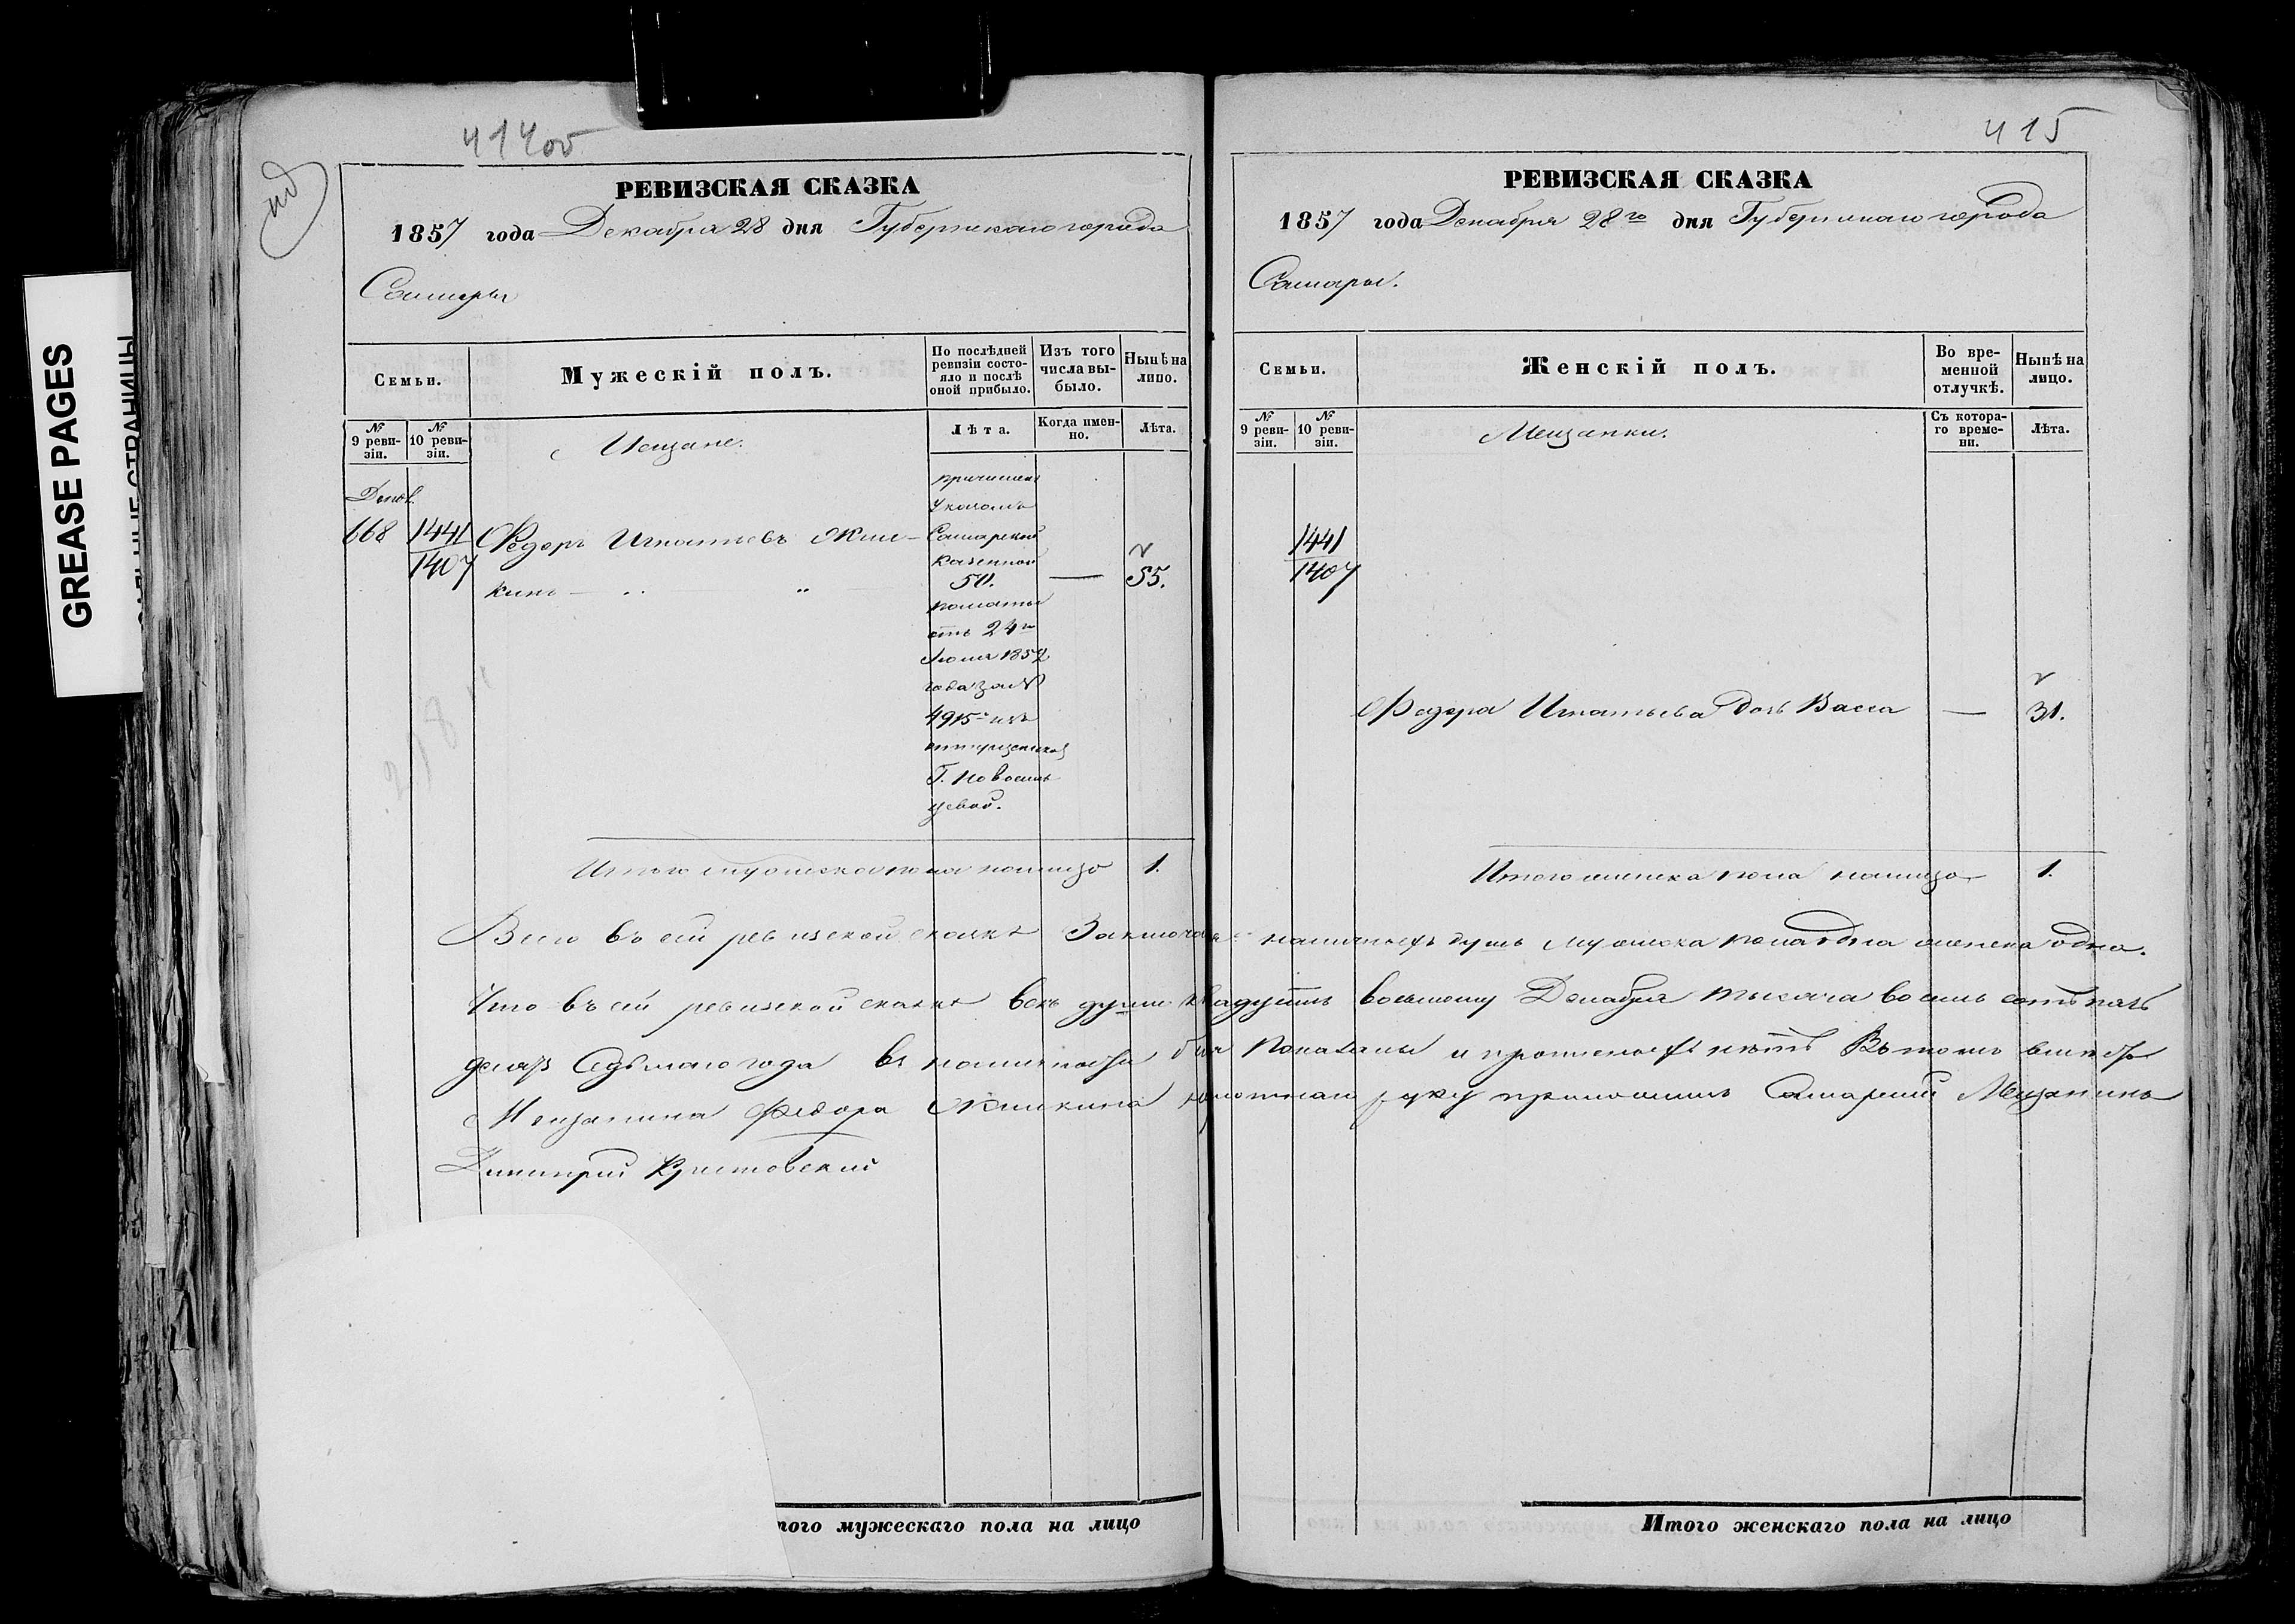 GREASE PAGES
414об
РЕВИЗСКАЯ СКАЗКА
1857 года Декабря 28 дня Губернскаго города
Самары
Семьи.
Мужескій полъ.
По послѣдней ревизіи состояло и послѣ оной прибыло.
Изъ того числа выбыло.
Нынѣ на лицо.
№ 9 ревизіи.
№ 10 ревизіи.
Мещане.
Лѣта.
Когда именно.
Лѣта.
Допол.
668 1441 Федоръ Игнатьевъ
1407
кинъ
причисленъ
указомъ
Самарской
казенной
50. — 55.
палаты
отъ 24го
1857
года за №
4915 изъ
Г. Новосиль
цевой.
Итого мужеска пола налицо 1.
Всего въ сей ревизской сказкѣ
Что въ сей ревизской сказкѣ всѣ души къ
десятъ седьмаго года въ наличности
Мещанина Федора
Димитрій
того мужескаго пола на лицо
415
РЕВИЗСКАЯ СКАЗКА
1857 года Декабря 28го дня Губернскаго города
Самары.
Семьи.
Женскій полъ.
Во временной отлучкѣ.
Нынѣ на лицо.
№ 9 ревизіи.
№ 10 ревизіи.
Мещанки.
Съ котораго времени.
Лѣта.
1441
1407
Федора Игнатьева дочь Васса — 31.
Итого женска пола налицо 1.
наличныхъ душъ мужеска пола одна женска одна.
двадцать восьмому Декабря тысяча восемь сотъ пять
показаны и прописныхъ нѣтъ Въ томъ вмѣсто
руку приложилъ Самарскій Мещанинъ
Итого женскаго пола на лицо